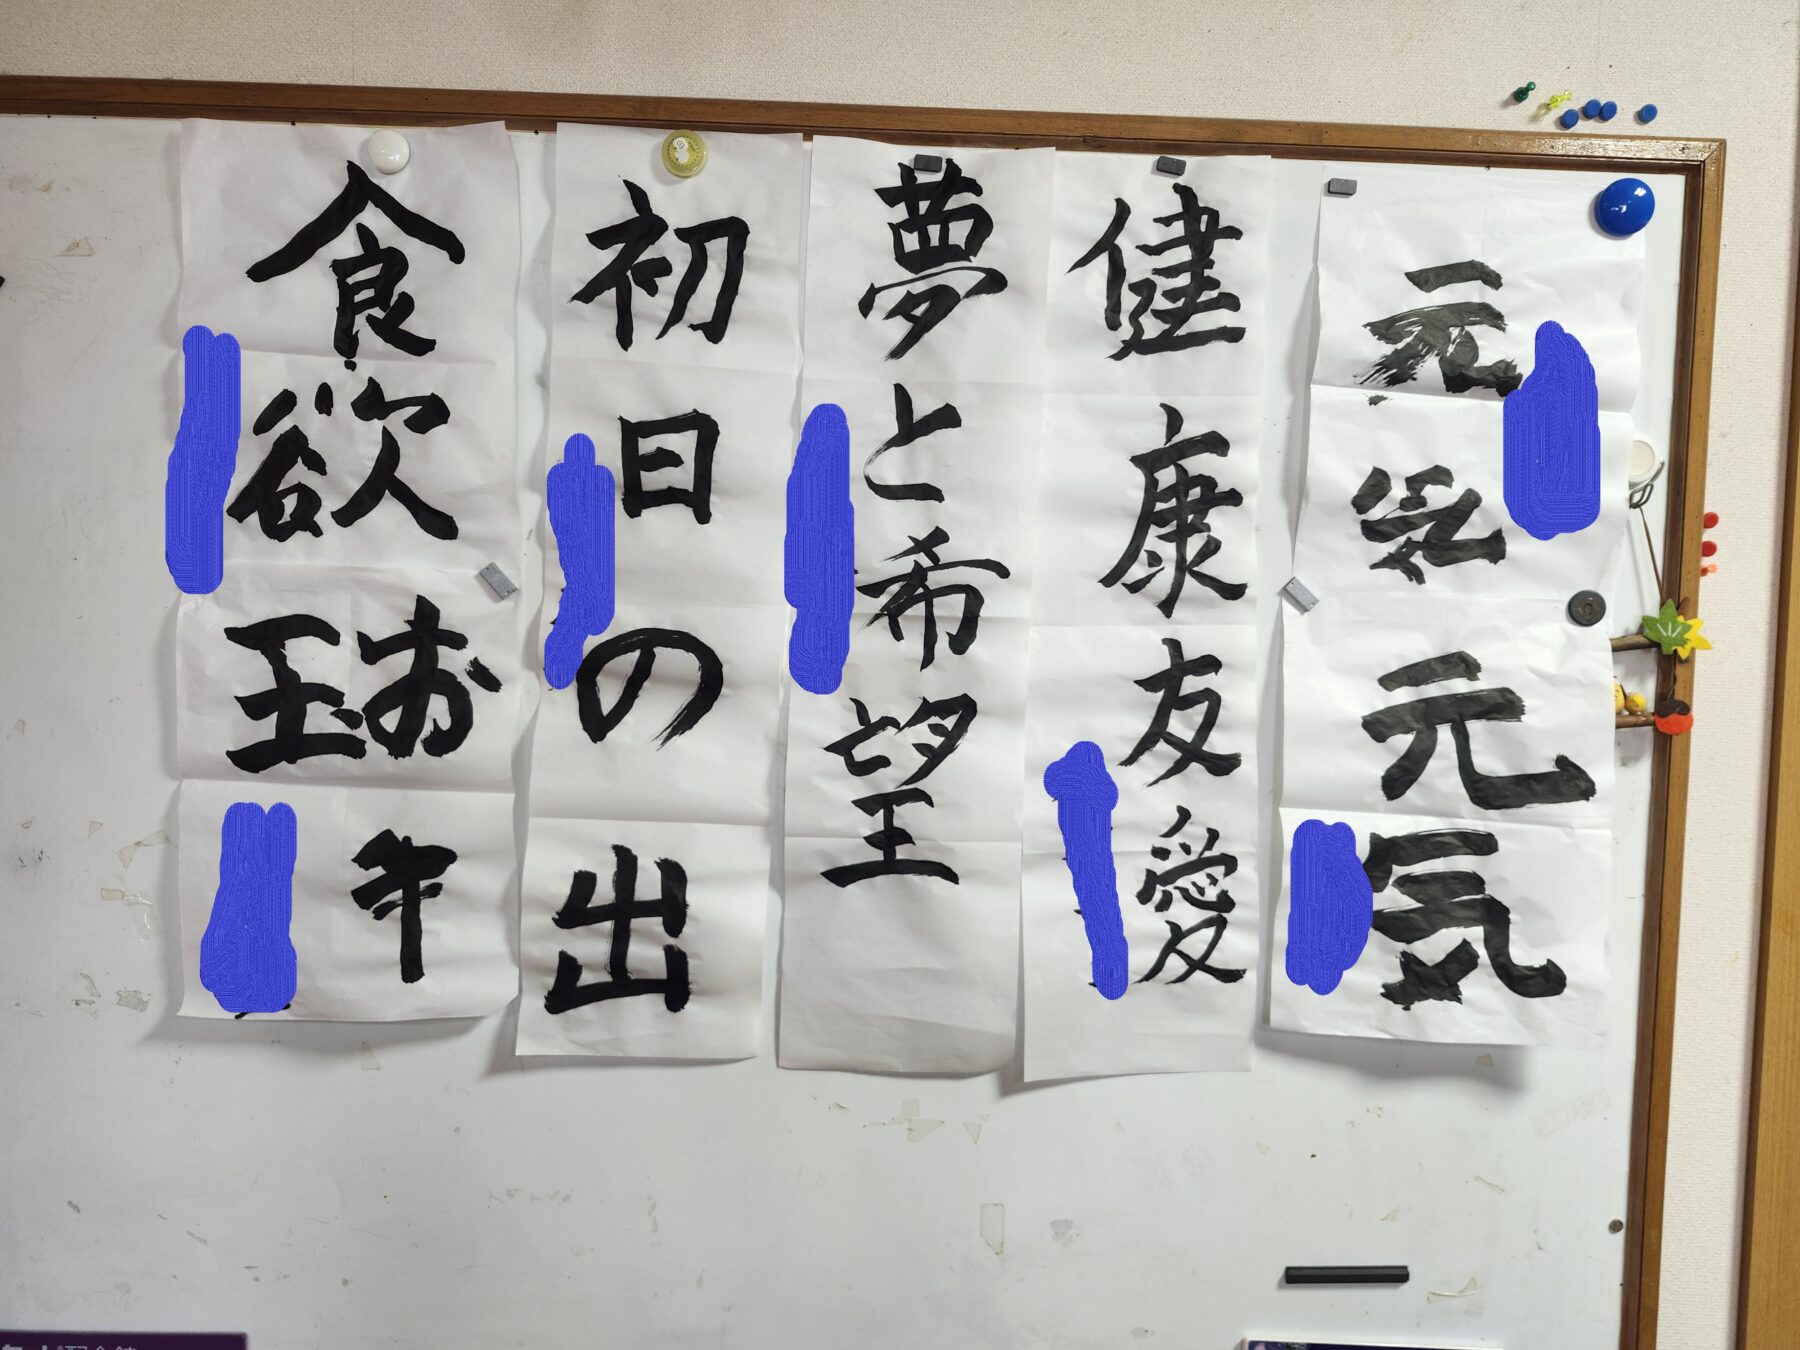 元気
元気
健康
友愛
夢と希望
初日の出
食欲
お玉
午